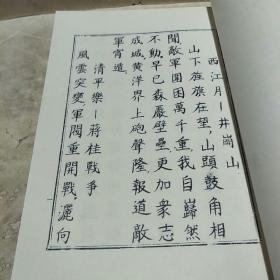 西江月—井崗山
山下旌旗在望,山頭鼓角相
聞敵軍圍困萬千重,我自巋然
不動,早已森嚴壁壘,更加衆志
成城,黄洋界上砲聲隆,報道敵
軍宵遁
清平樂—蔣桂戰爭
風雲突變,軍閥重開戰,灑向